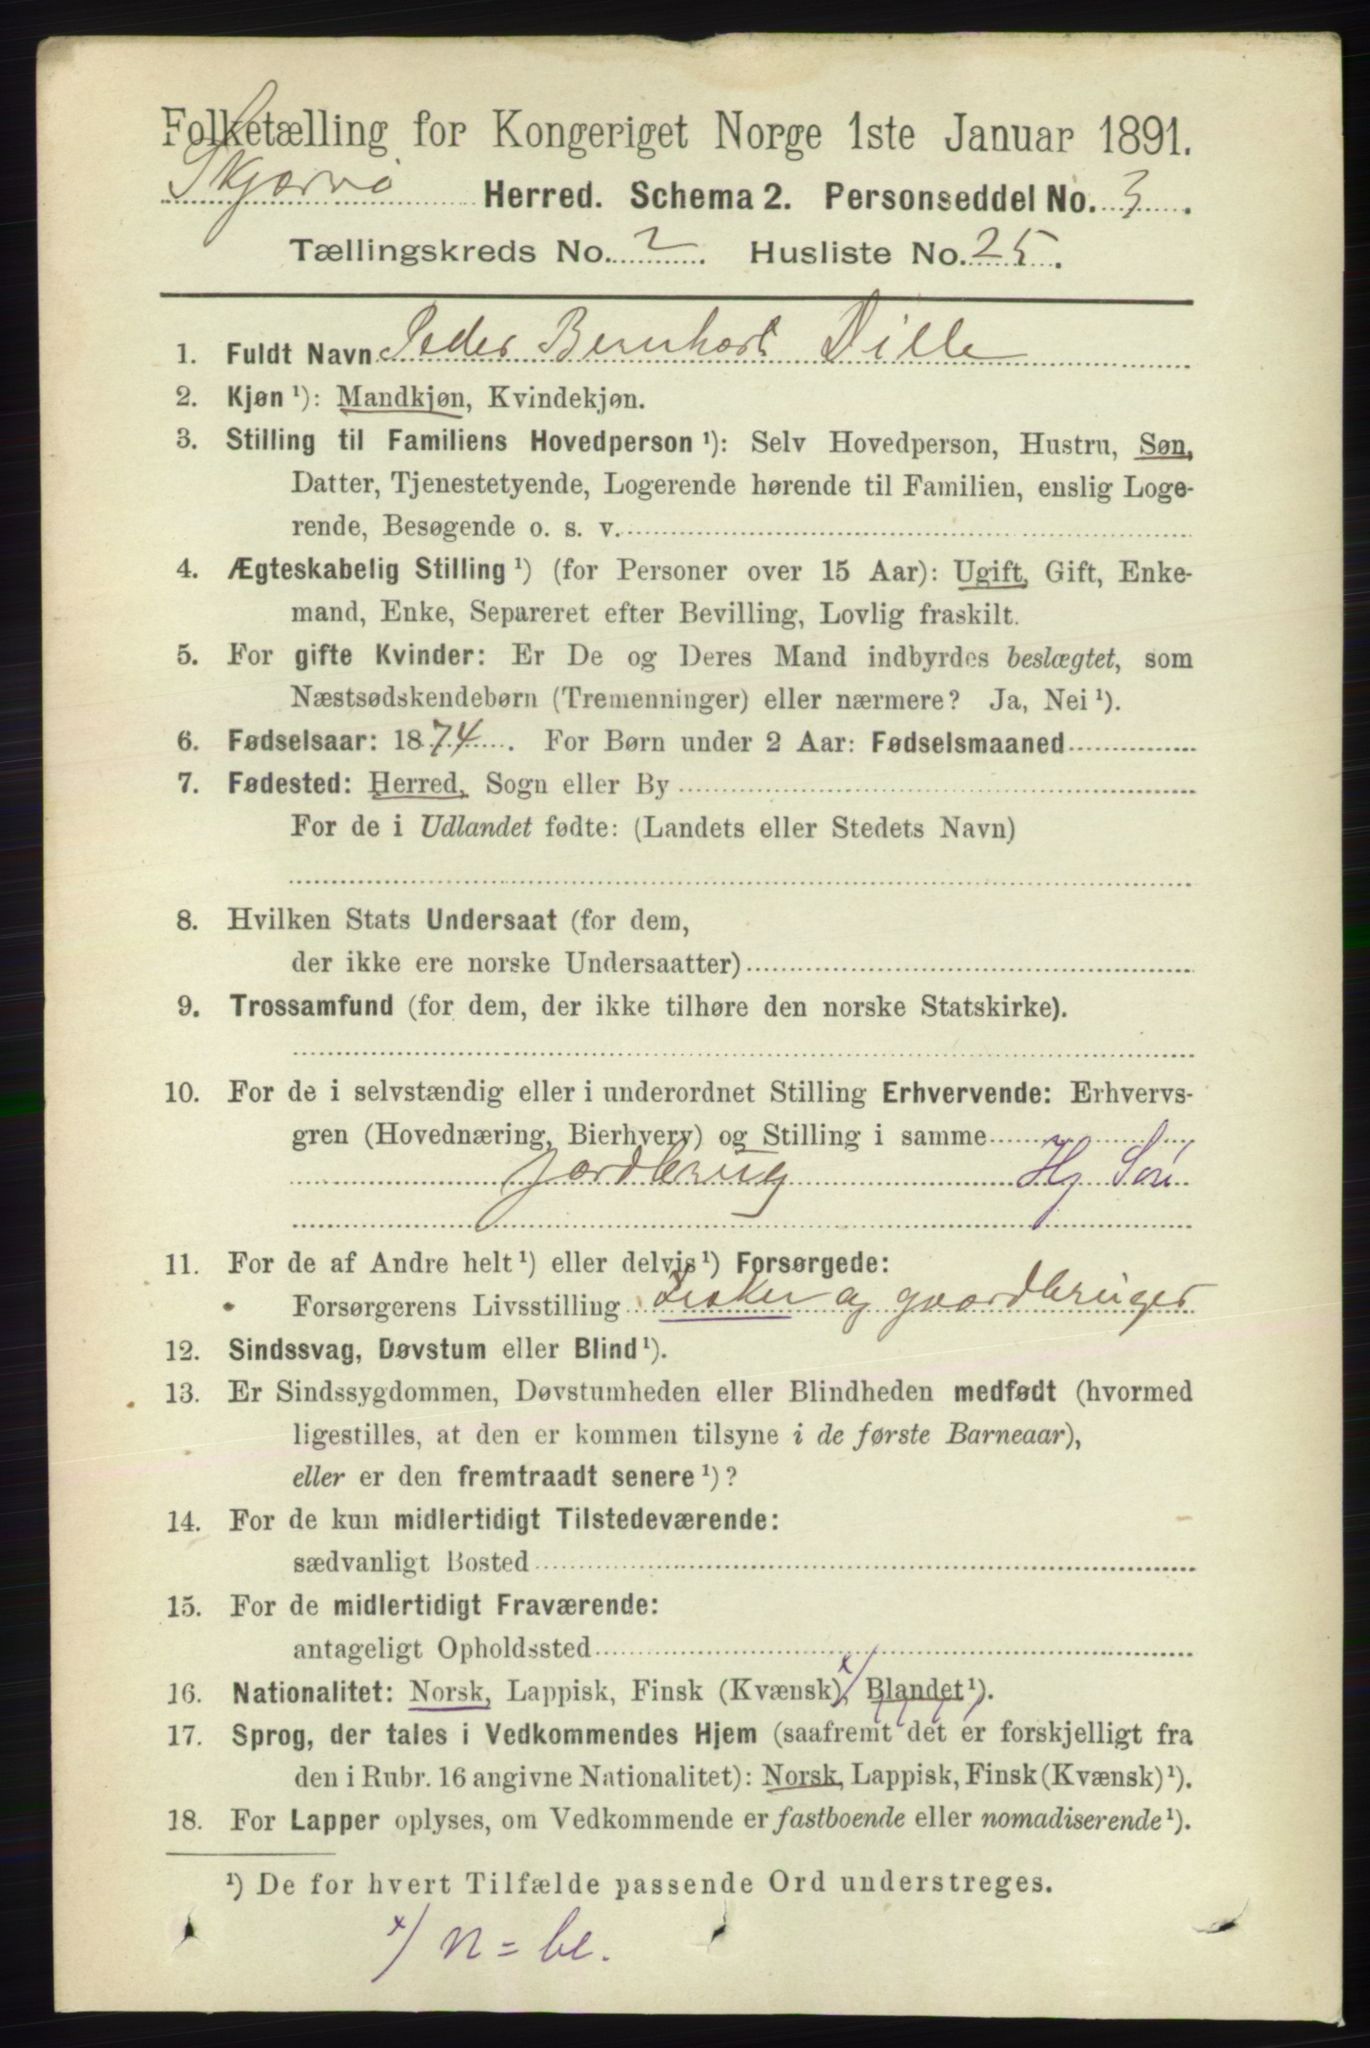 Folketælling for Kongeriget Norge 1ste Januar 1891.
Skjærvø Herred. Schema 2. Personseddel No. 3.
Tællingskreds No. 2. Husliste No. 25.
1. Fuldt Navn Peder Bernhard Dille
2. Kjøn ¹): Mandkjøn, Kvindekjøn.
3. Stilling til Familiens Hovedperson ¹): Selv Hovedperson, Hustru, Søn,
Datter, Tjenestetyende, Logerende hørende til Familien, enslig Loge-
rende, Besøgende o. s. v.
4. Ægteskabelig Stilling ¹) (for Personer over 15 Aar): Ugift, Gift, Enke-
mand, Enke, Separeret efter Bevilling, Lovlig fraskilt.
5. For gifte Kvinder: Er De og Deres Mand indbyrdes beslægtet, som
Næstsødskendebørn (Tremenninger) eller nærmere? Ja, Nei ¹).
6. Fødselsaar: 1874. For Børn under 2 Aar: Fødselsmaaned
7. Fødested: Herred, Sogn eller By
For de i Udlandet fødte: (Landets eller Stedets Navn)
8. Hvilken Stats Undersaat (for dem,
der ikke ere norske Undersaatter)
9. Trossamfund (for dem, der ikke tilhøre den norske Statskirke).
10. For de i selvstændig eller i underordnet Stilling Erhvervende: Erhvervs-
gren (Hovednæring, Bierhverv) og Stilling i samme
Jordbrug Hj Søn
11. For de af Andre helt ¹) eller delvis ¹) Forsørgede:
Forsørgerens Livsstilling Fisker og gaardbruger
12. Sindssvag, Døvstum eller Blind ¹).
13. Er Sindssygdommen, Døvstumheden eller Blindheden medfødt (hvormed
ligestilles, at den er kommen tilsyne i de første Barneaar),
eller er den fremtraadt senere ¹)?
14. For de kun midlertidigt Tilstedeværende:
sædvanligt Bosted
15. For de midlertidigt Fraværende:
antageligt Opholdssted
16. Nationalitet: Norsk, Lappisk, Finsk (Kvænsk), x/ Blandet ¹).
17. Sprog, der tales i Vedkommendes Hjem (saafremt det er forskjelligt fra
den i Rubr. 16 angivne Nationalitet): Norsk, Lappisk, Finsk (Kvænsk) ¹).
18. For Lapper oplyses, om Vedkommende er fastboende eller nomadiserende ¹).
¹) De for hvert Tilfælde passende Ord understreges.
x/ n = bl.